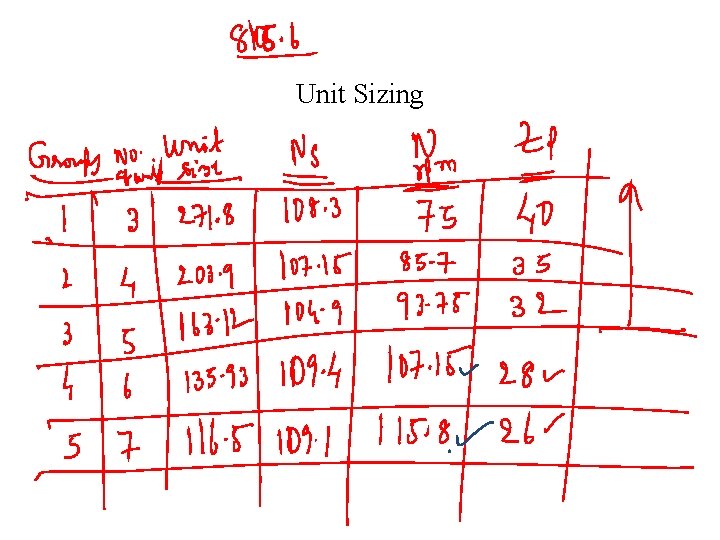 815.6
Unit Sizing
Groups No. of unit Unit size Ns N rpm 2P
1 3 271.8 108.3 75 40
2 4 203.9 107.15 85.7 35
3 5 163.12 104.9 93.75 32
4 6 135.93 109.4 107.15 28
5 7 116.5 109.1 115.8 26